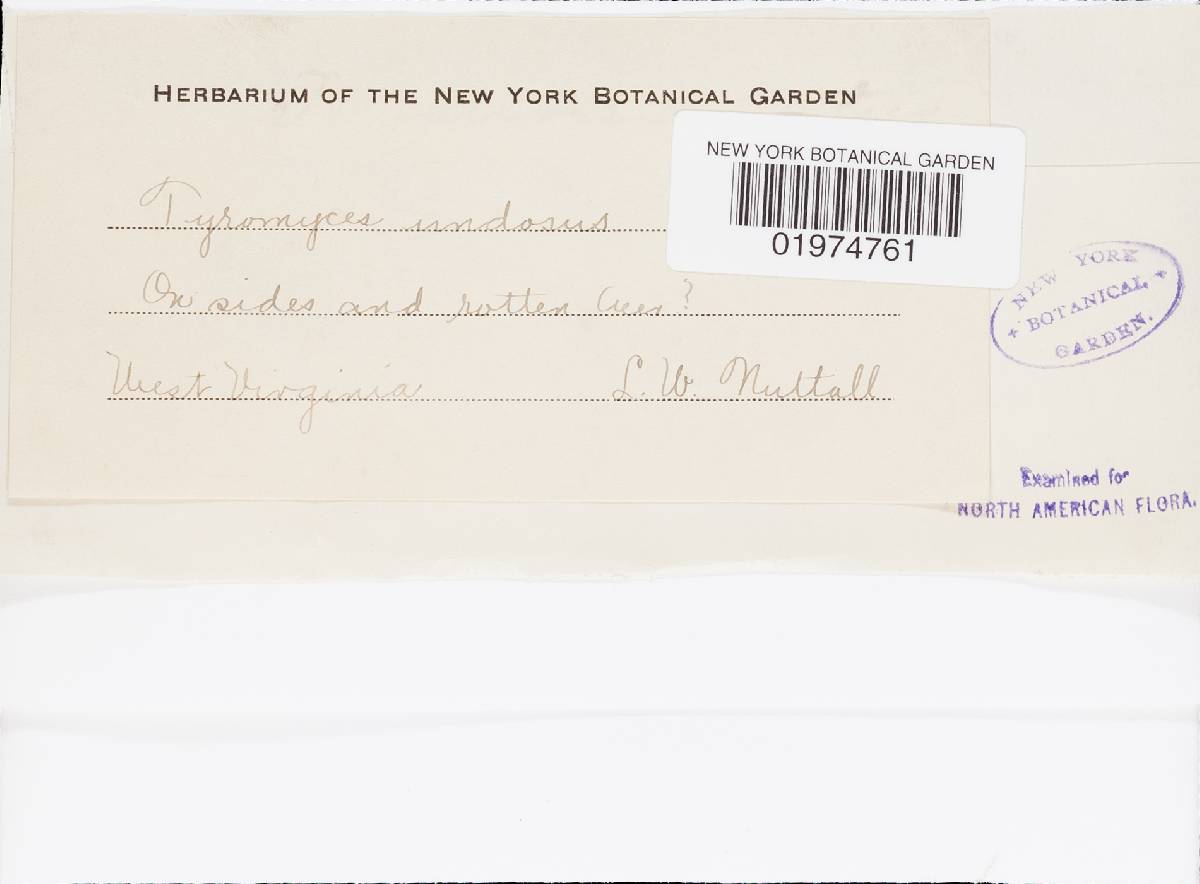 HERBARIUM OF THE NEW YORK BOTANICAL GARDEN
NEW YORK BOTANICAL GARDEN
01974761
Tyromyces undosus
On sides and rotten ?
West Virginia L. W. Nuttall
NEW YORK
+ BOTANICAL +
GARDEN.
Examined for
NORTH AMERICAN FLORA.